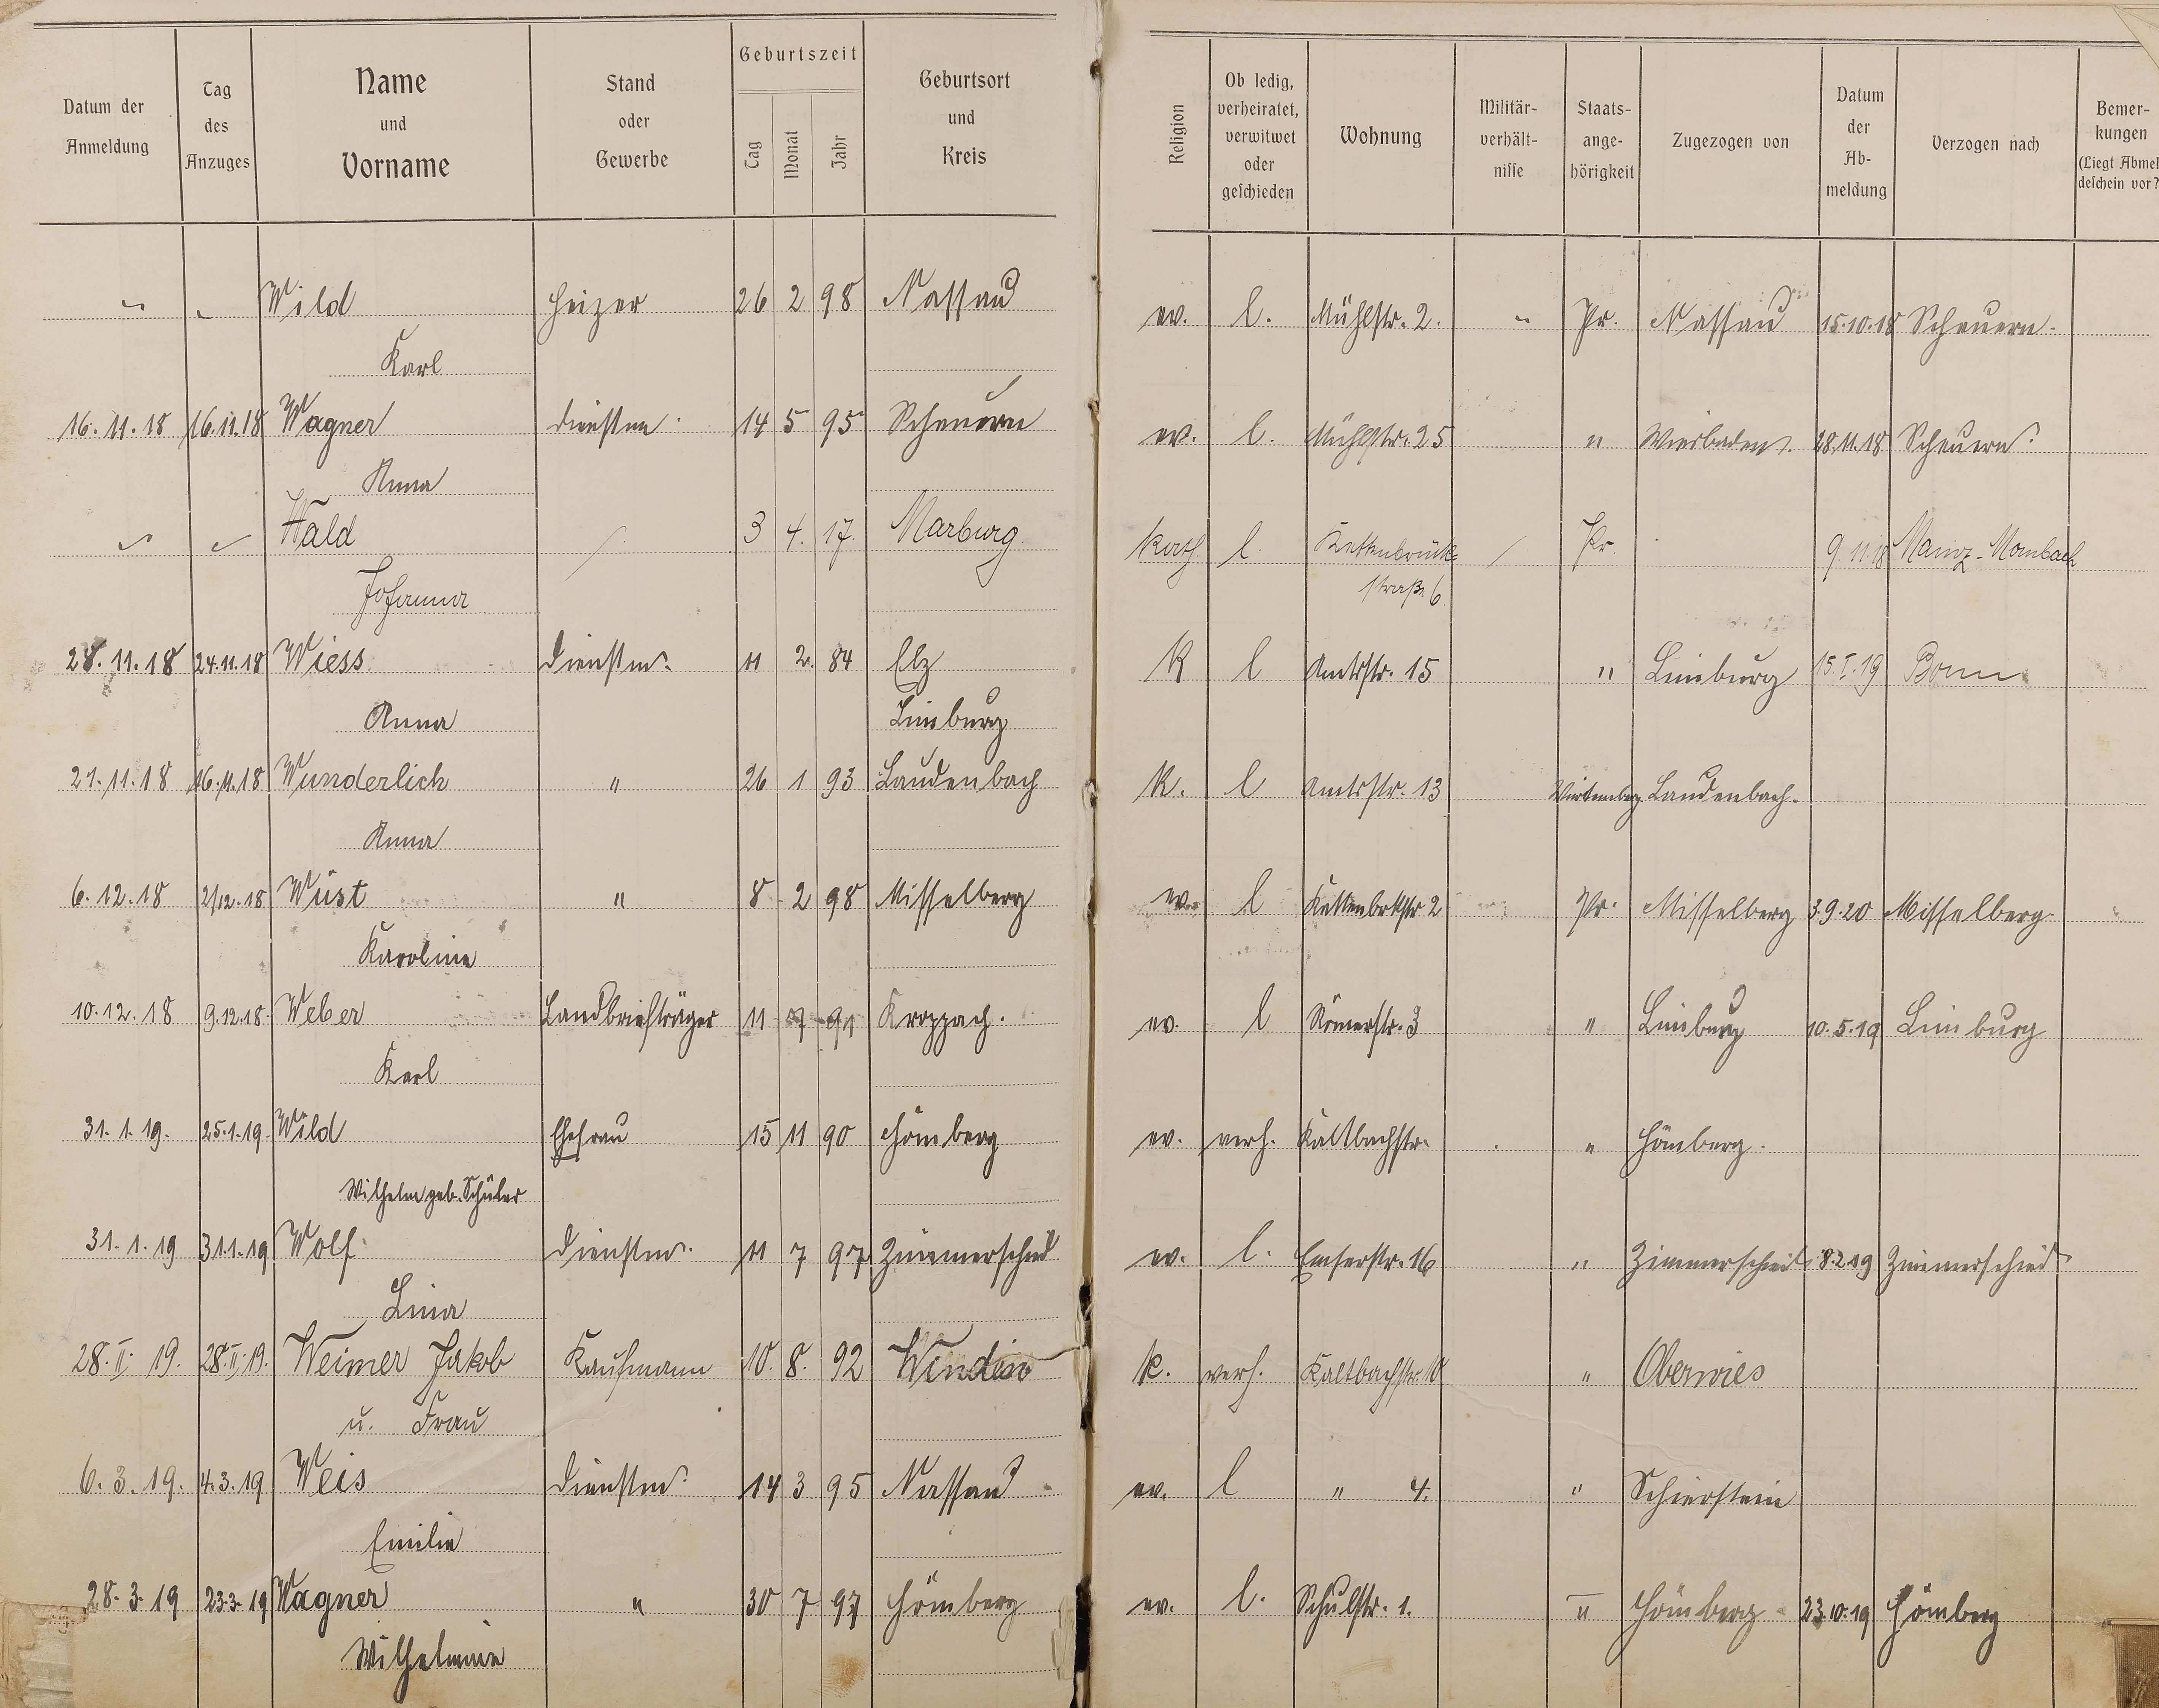 Datum der Anmeldung
Tag des Anzuges
Name und Vorname
Stand oder Gewerbe
Geburtszeit
Tag Monat Jahr
Geburtsort und Kreis
Religion
Ob ledig, verheiratet, verwitwet oder geschieden
Wohnung
Militär-verhält-nisse
Staats-ange-hörigkeit
Zugezogen von
Datum der Ab-meldung
Verzogen nach
Bemer-kungen (Liegt Abmel deschein vor?
" " Wild Heizer 26 2 98 Nassau ev. l. Mühlstr. 2. " Pr. Nassau 15.10.18 Scheuern.
Karl
16.11.18 16.11.18 Wagner Dienstm. 14 5 95 Scheuern ev. l. Mühlstr. 25 " Wiesbaden. 28.11.18 Scheuern.
Anna
" " Wald / 3 4. 17. Marburg kath. l. Kettenbrück- / Pr. 9.11.18 Mainz-Mombach
Johanna straße 6
28.11.18 24.11.18 Wiess Dienstm. 11 2. 84 Elz K l Amtsstr. 15 " Limburg 15.I.19 Bonn
Anna Limburg
21.11.18 16.11.18 Wunderlich " 26 1 93 Laudenbach K. l Amtsstr. 13 Würtemberg. Laudenbach.
Anna
6.12.18 2/12.18 Wüst " 8 2 98 Misselberg ev. l Kettenbrkstr 2 Pr. Misselberg 3.9.20 Misselberg
Karoline
10.12.18 9.12.18 Weber Landbriefträger 11 7 91 Kroppach. ev. l Römerstr. 3 " Limburg 10.5.19 Limburg
Karl
31.1.19. 25.1.19 Wild Ehefrau 15 11 90 Hömberg ev. verh. Kaltbachstr. " Hömberg.
Wilhelm geb. Schüler
31.1.19 31.1.19 Wolf Dienstm. 11 7 97 Zimmerschied ev. l. Emserstr. 16 " Zimmerschied 8.2.19 Zimmerschied
Lina
28.II.19. 28.II.19. Weimer Jakob Kaufmann 10. 8. 92 Winden k. verh. Kaltbachstr. 10 " Oberwies
u. Frau
6.3.19. 4.3.19 Weis Dienstm. 14 3 95 Nassau ev. l " 4. " Schierstein
Emilie
28.3.19 23.3.19 Wagner " 30 7 97 Hömberg ev. l. Schulstr. 1. " Hömberg 23.10.19 Hömberg
Wilhelmine